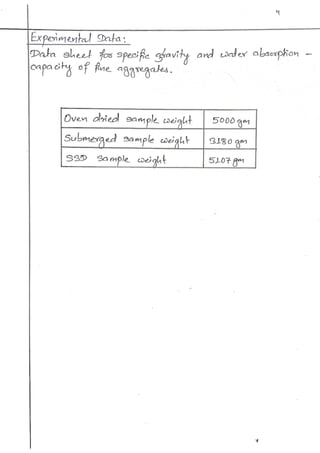 Experimental Data:
Data sheet for specific gravity and water absorption -
capacity of fine aggregates.
Oven dried sample weight 5000 gm
Submerged sample weight 3180 gm
SSD sample weight 5107 gm